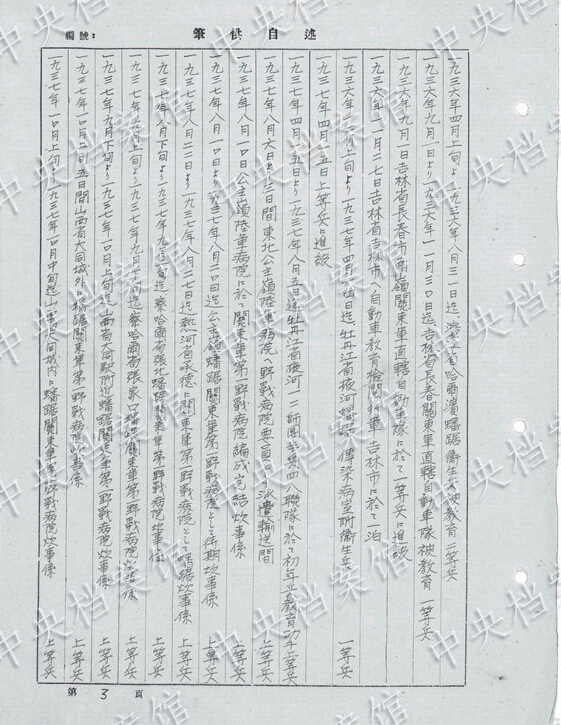 編號:
筆供自述
一九三六年四月上旬より一九三六年八月三一日迄 濱江省哈爾濱蟠踞衛生兵被教育 二等兵
一九三六年九月一日より一九三六年一一月三〇日迄吉林省長春關東軍直轄自動車隊被教育 一等兵
一九三六年九月一日吉林省長春市 嶺關東軍直轄自動車隊に於て一等兵に進級
一九三六年一一月二七日吉林省吉林市へ自動車教育檢閲行軍 吉林市に於て一泊
一九三六年 月上旬より一九三七年四月 五日迄、牡丹江省夜河蟠踞 傳染病室附衛生兵 一等兵
一九三七年四月一五日上等兵に進級
一九三七年四月 五日より一九三七年八月五日迄牡丹江省夜河一二師團 第四 聯隊に於て初年兵教育助手上等兵
一九三七年八月六日より三日間東北公主嶺陸軍病院へ野戰病院要員として派遣輸送間 上等兵
一九三七年八月一〇日公主嶺陸軍病院に於て關東軍第一野戰病院編成完結炊事係 上等兵
一九三七年八月一〇日より一九三七年八月二〇日迄公主嶺蟠踞關東軍第一野戰病院として待期炊事係 上等兵
一九三七年八月二二日より一九三七年八月二七日迄熱河省承德に關東軍第一野戰病院として蟠踞炊事係 上等兵
一九三七年八月下旬より一九三七年九月 旬迄察哈爾省張北蟠踞關東軍第一野戰病院炊事係 上等兵
一九三七年九月上旬より一九三七年九月下旬迄察哈爾省張家口蟠踞關東軍第一野戰病院炊事係 上等兵
一九三七年九月下旬より一九三七年一〇月上旬迄山西省大同驛附近蟠踞關東軍第一野戰病院炊事係 上等兵
一九三七年一〇月上旬五日間山西省大同城外に蟠踞關東軍第一野戰病院炊事係 上等兵
一九三七年一〇月上旬より一九三七年一〇月中旬迄山西省大同城内に蟠踞關東軍第一野戰病院炊事係 上等兵
第 3 頁
中央档案馆